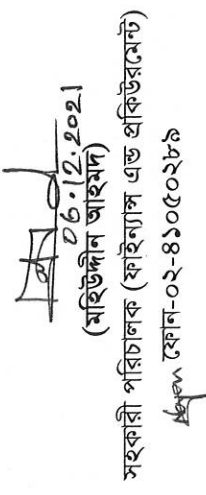 06.12.2021
(মহিউদ্দীন আহমদ)
সহকারী পরিচালক (ফাইন্যান্স এন্ড প্রকিউরমেন্ট)
ফোন-০২-৪১০৫০২৮৯